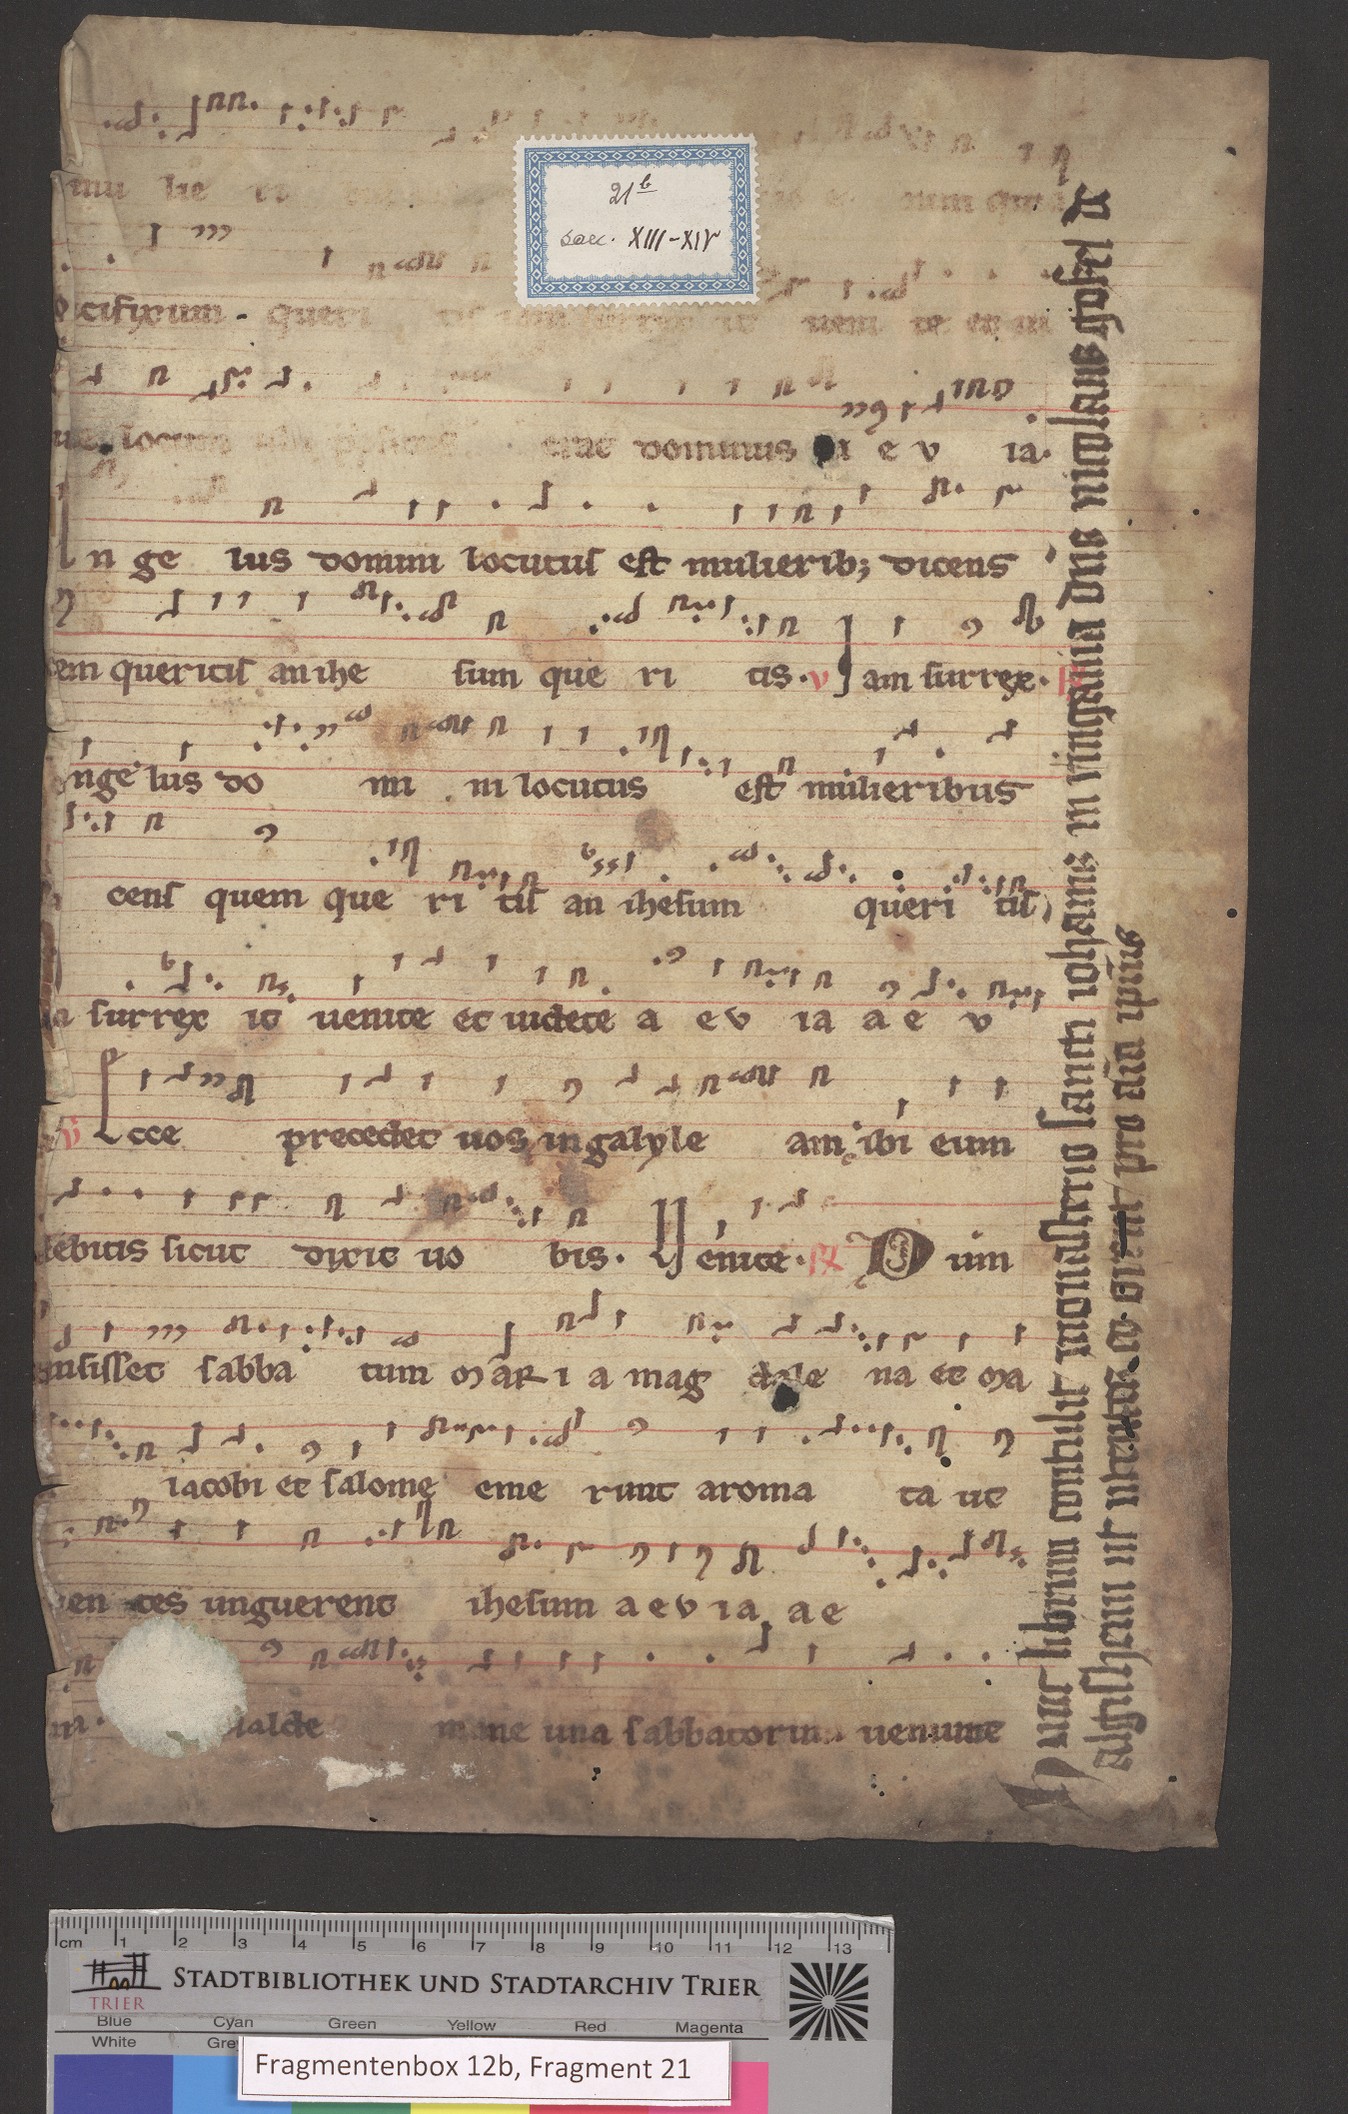 21b
saec. XIII-XIV
mu lie ri
cifixum. queri tis iam surrex it ueni te et ui
locum erat dominus a e v ia.
n ge lus domini locutus est mulierib; dicens
em queritis an ihe sum que ri tis. v Iam surrex. R
nge lus do mi ni locutus est mulieribus
cens quem que ri tis an ihesum queri tis
surrex it uenite et uidete a e v ia a e v
V Ecce precedet uos in galyle am ibi eum
debitis sicut dixit uo bis. V enite. R Dum
nsisset sabba tum MaR i a mag dale na et Ma
iacobi et salome eme runt aroma ta ut
en tes unguerent ihesum a e v i a a e
ia. ualde mane una sabbatorum ueniunt
hunc librum contulit monasterio sancti iohannis in ringauia dns nicolaus
algisheim ut utatur eo orent pro aia ipius
cm 1 2 3 4 5 6 7 8 9 10 11 12 13
STADTBIBLIOTHEK UND STADTARCHIV TRIER
TRIER
Blue Cyan Green Yellow Red Magenta
White Grey
Fragmentenbox 12b, Fragment 21